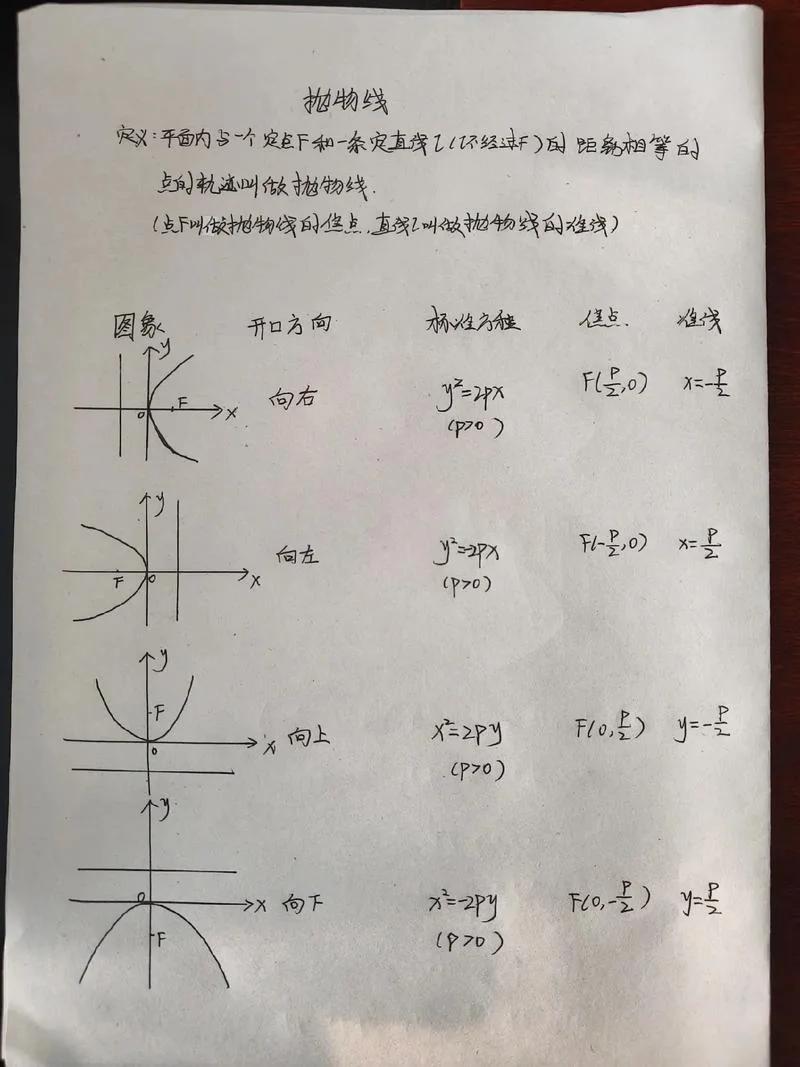 抛物线
定义:平面内与一个定点F和一条定直线l(l不经过F)的距离相等的
点的轨迹叫做抛物线.
(点F叫做抛物线的焦点,直线l叫做抛物线的准线)
图象 开口方向 标准方程 焦点. 准线
y
O F x 向右 y²=2px F(P/2,0) x=-P/2
(p>0)
y
F O x 向左 y²=-2px F(-P/2,0) x=P/2
(p>0)
y
F
O x 向上 x²=2py F(0,P/2) y=-P/2
(p>0)
y
O x 向下 x²=-2py F(0,-P/2) y=P/2
F (p>0)